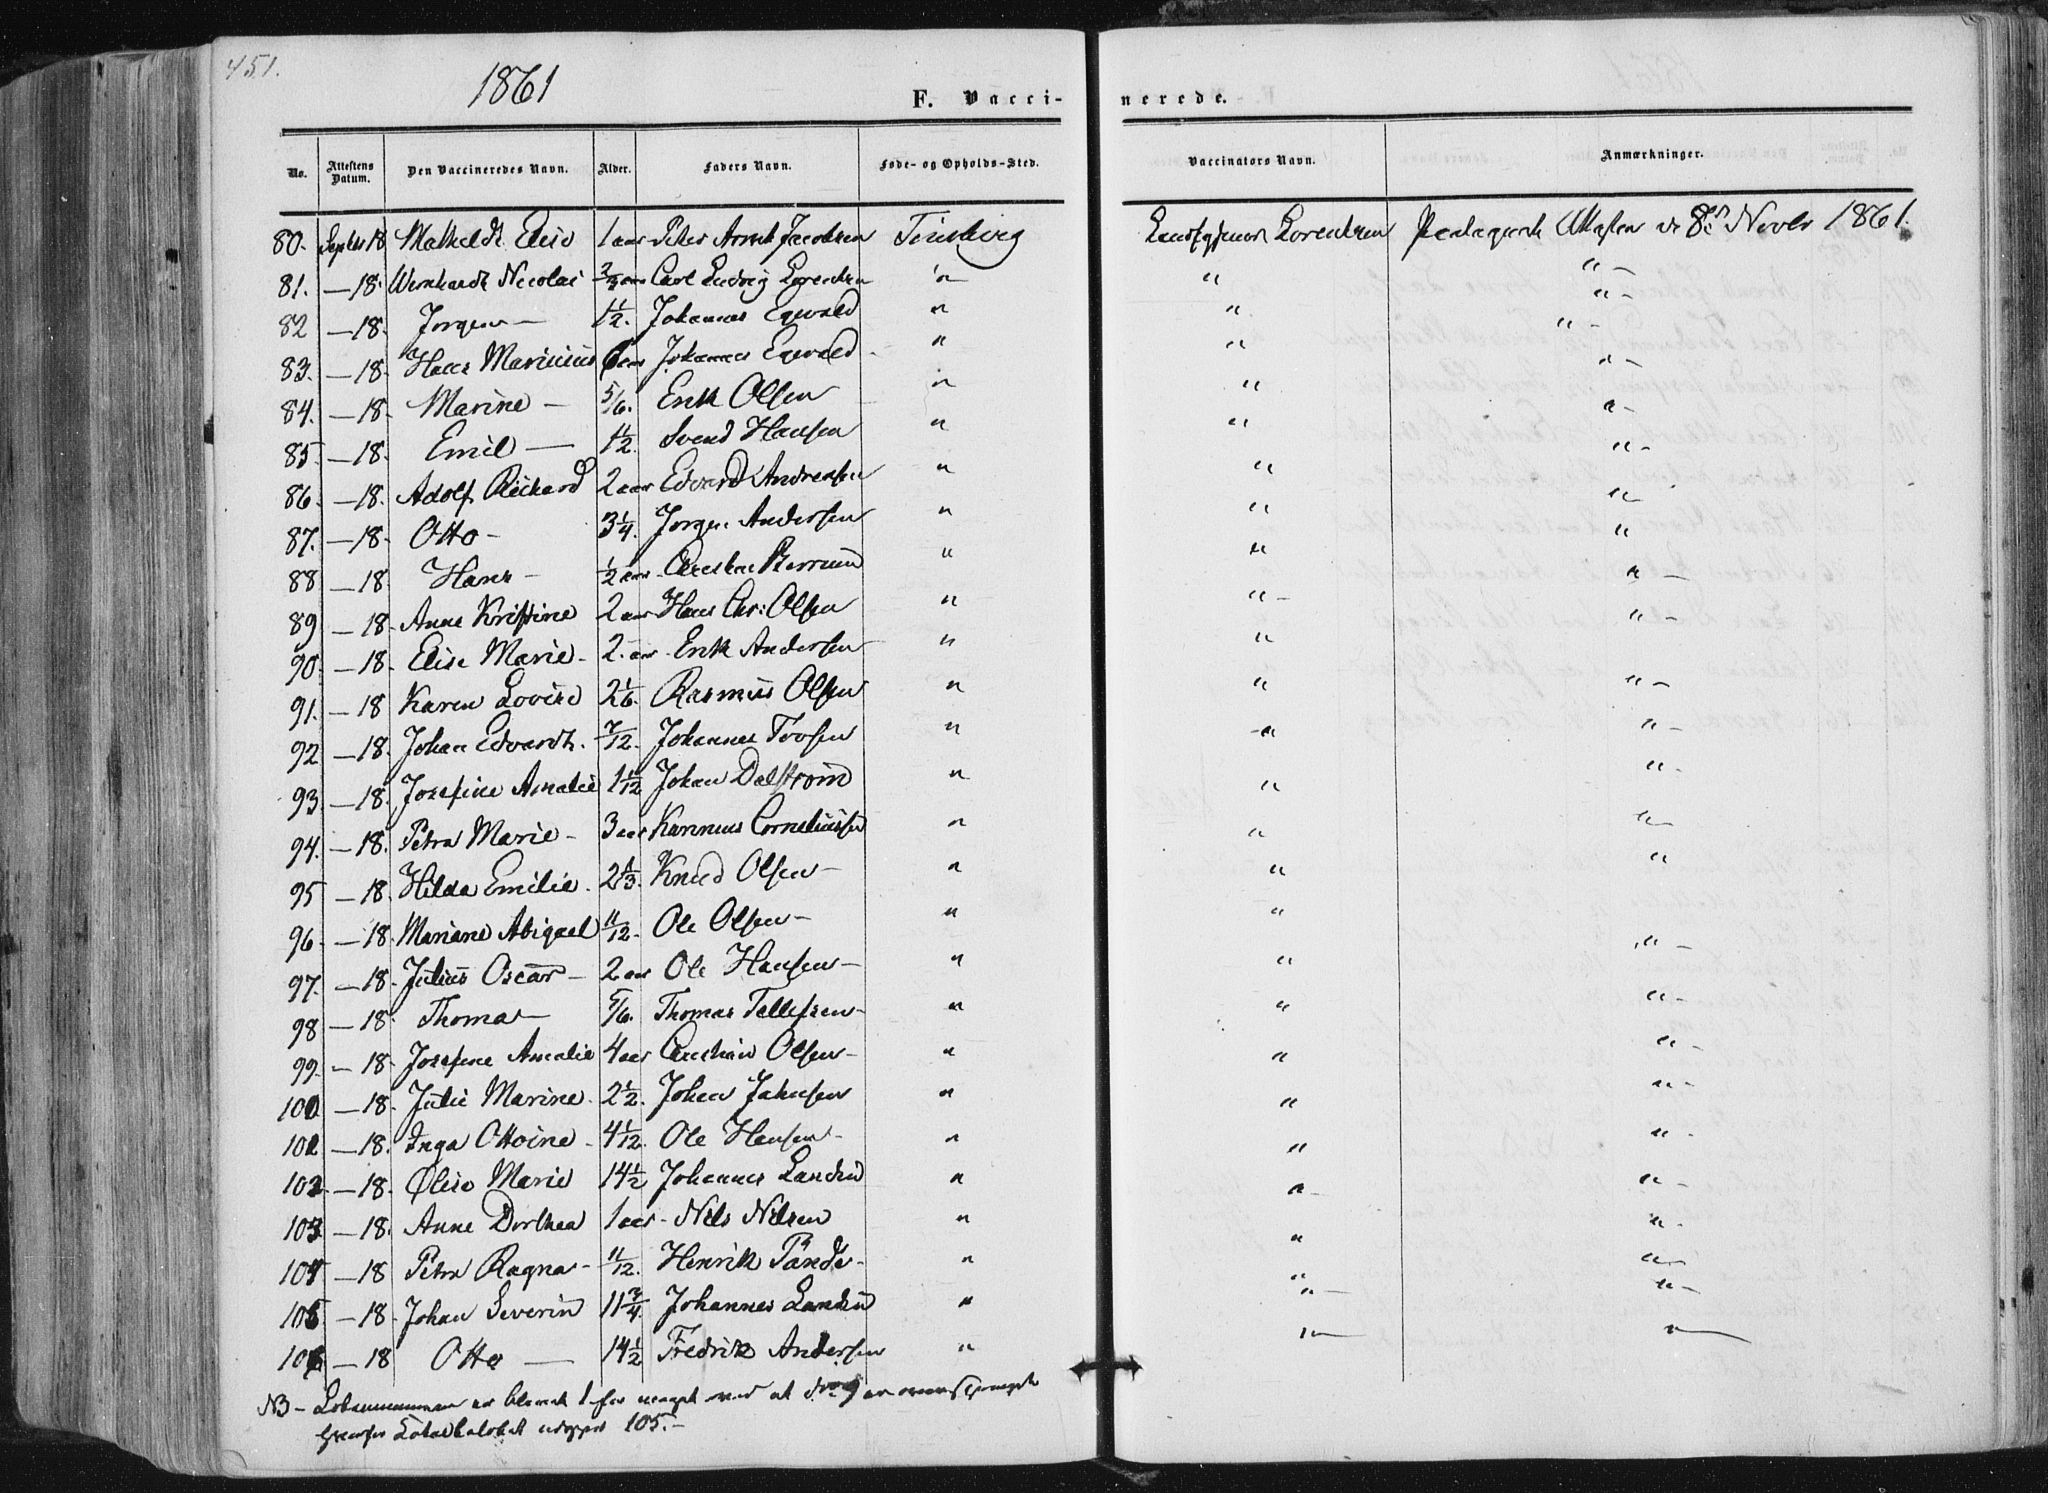 451.
1861
F. Vaccinerede.
No. Attestens Datum. Den Vaccineredes Navn. Alder. Faders Navn. Føde- og Opholds-Sted. Vaccinators Navn. Anmærkninger.
80. Septbr 18 Mathilde Elise 1 aar Peter Arndt Jacobsen Tönsberg Lorentzen 8de Novbr 1861.
81. — 18. Wernhardt Nicolai 2/3 aar Carl Ludvig Lorentzen " " " –
82 — 18. Jørgen — 1 1/2. Johannes Egwald " " " –
83. — 18. Hans Marinius 6 aar Johannes Egwald " " " –
84. — 18. Marine — 5/6. Erik Olsen " " " –
85. — 18. Emil — 1 1/2. Svend Hansen " " " –
86. — 18. Adolf Richard 2 aar Edvard Andreasen " " " –
87. — 18. Otto – 3 1/4. Jørgen Andersen " " "
88 — 18. Hans – 1/2 aar " " "
89 — 18. Anne Kristine 2 aar Hans Chr: Olsen " " " –
90. — 18. Elise Marie – 2. aar Erik Andersen " " " –
91. — 18 Karen Lovise 2 1/6. Rasmus Olsen " " " –
92 — 18. Johan Edvardt. 7/12. Johannes " " " –
93. — 18. Josefine Amalie 1 1/12 Johan Dalstrøm " " " –
94. — 18. Petra Marie – 3 aar Corneliussen " " " –
95 — 18. Hilda Emilie. 2 1/3. Knud Olsen – " " "
96. — 18. Mariane Abigael 11/12. Ole Olsen – " " " –
97. — 18. Julius Oscar – 2 aar Ole Hansen – " " " –
98 — 18. Thomas — 5/6. Thomas Tellefsen – " " " –
99. — 18. Josefine Amalie 4 aar Christian Olsen – " " " –
100 — 18. Julie Marine. 2 1/2. Johan Johnsen " " " –
101 — 18. Inga Ottoine – 4 1/12. Ole Hansen – " " " –
102. — 18. Ølise Marie 14 1/2 Johannes " " " –
103. — 18. Anne Dorthea 1 aar – Nils Nilsen " " " –
104 — 18 Petra Ragna – 11/12. Henrik " " " –
105 — 18. Johan Severin 11 3/4. Johannes " " " –
106 — 18 Otto — 14 1/2 Fredrik Andersen " " "
NB – 1 for at No 9 er
105. –